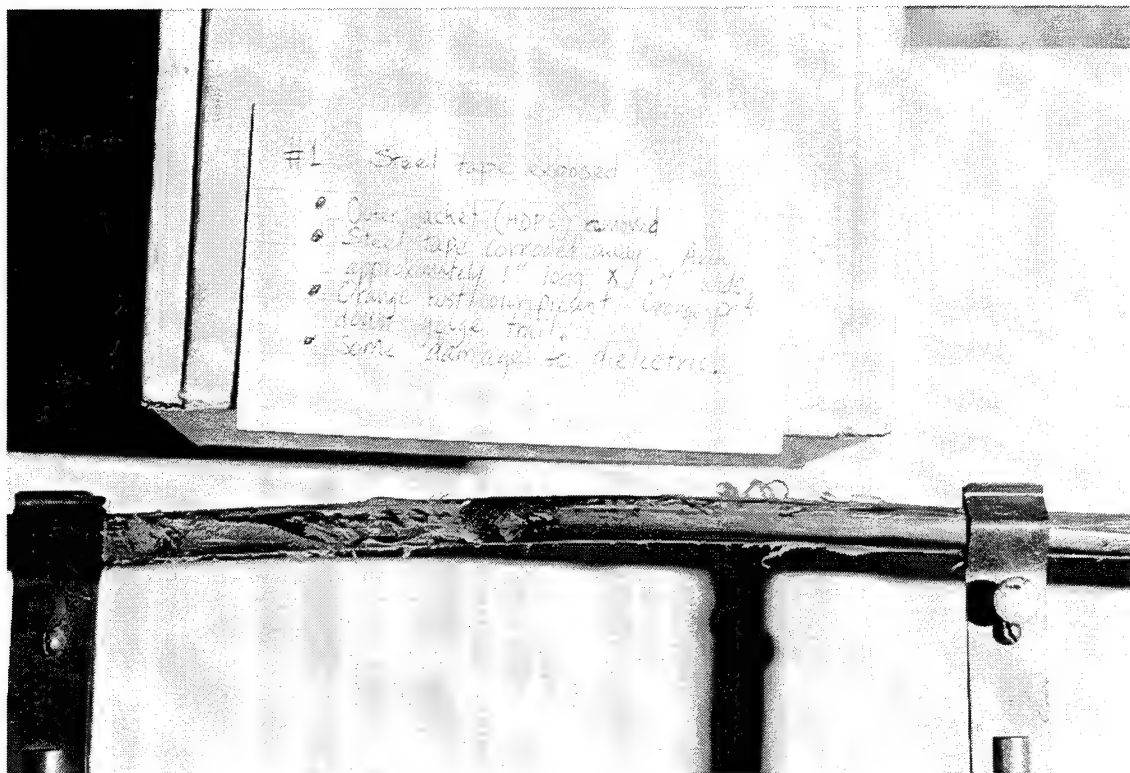 #1 Steel tape exposed
• Outer jacket (HDPE) removed
• Steel tape corroded away. Area
approximately 1" long X
• Orange rust
down
• Some damage to dielectric.